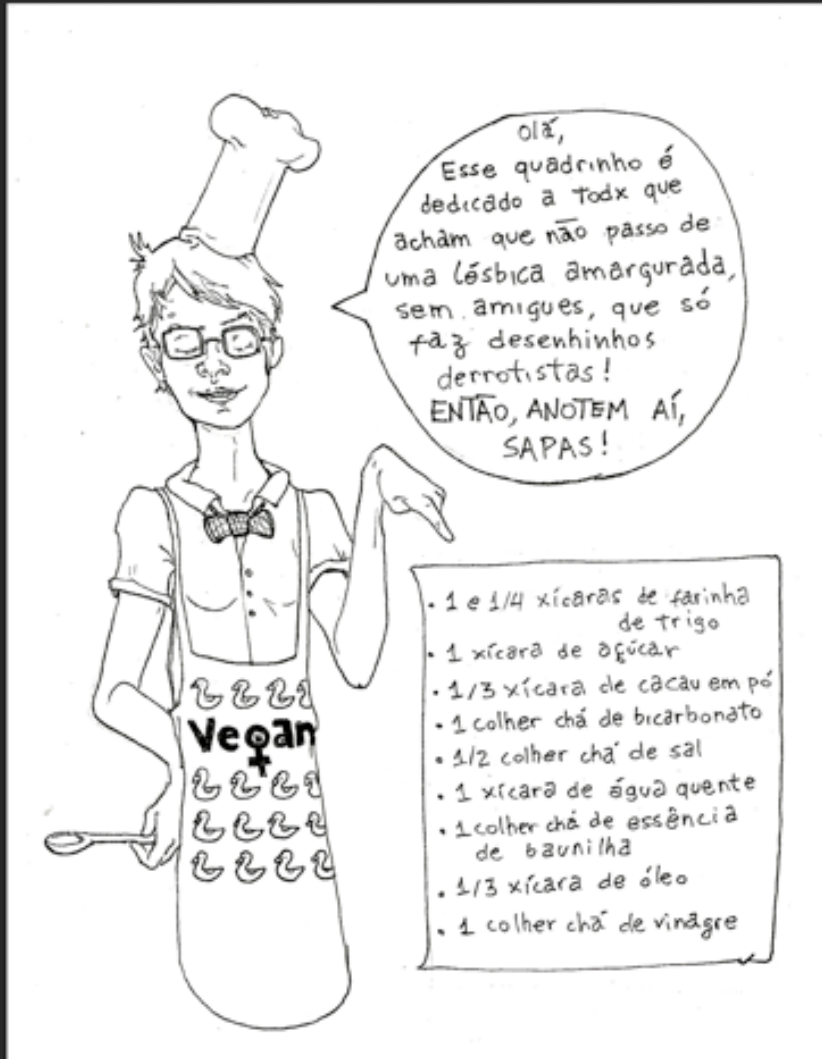 Olá,
Esse quadrinho é
dedicado a Todx que
acham que não passo de
uma lésbica amargurada,
sem amigues, que só
faz desenhinhos
derrotistas!
ENTÃO, ANOTEM AÍ,
SAPAS!
• 1 e 1/4 xícaras de farinha
de trigo
• 1 xícara de açúcar
• 1/3 xícara de cacau em pó
• 1 colher chá de bicarbonato
• 1/2 colher chá de sal
• 1 xícara de água quente
• 1 colher chá de essência
de baunilha
• 1/3 xícara de óleo
• 1 colher chá de vinagre
Vegan